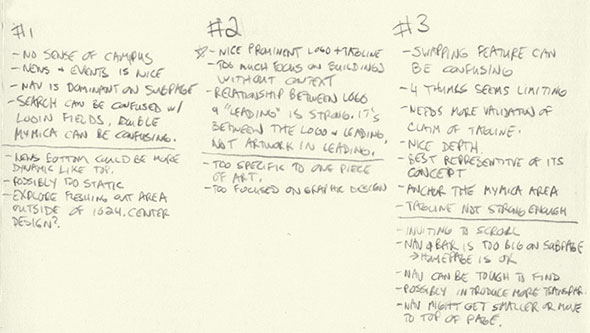 #1
- NO SENSE OF CAMPUS
- NEWS + EVENTS IS NICE
- NAV IS DOMINANT ON SUBPAGE
- SEARCH CAN BE CONFUSED W/
LOGIN FIELDS, DOUBLE
MYMICA CAN BE CONFUSING.
- NEWS BOTTOM COULD BE MORE
DYNAMIC LIKE TOP.
- POSSIBLY TOO STATIC
- EXPLORE FLESHING OUT AREA
OUTSIDE OF 1024. CENTER
DESIGN?
#2
☆ - NICE PROMINENT LOGO + TAGLINE
- TOO MUCH FOCUS ON BUILDINGS
WITHOUT CONTEXT
- RELATIONSHIP BETWEEN LOGO
& "LEADING" IS STRONG. IT'S
BETWEEN THE LOGO & LEADING,
NOT ARTWORK IN LEADING.
- TOO SPECIFIC TO ONE PIECE
OF ART.
- TOO FOCUSED ON GRAPHIC DESIGN
#3
- SWAPPING FEATURE CAN
BE CONFUSING
- 4 THUMBS SEEMS LIMITING
- NEEDS MORE VALIDATION OF
CLAIM OF TAGLINE.
- NICE DEPTH.
- BEST REPRESENTATIVE OF ITS
CONCEPT
- ANCHOR THE MYMICA AREA
- TAGLINE NOT STRONG ENOUGH
- INVITING TO SCROLL
- NAV BAR IS TOO BIG ON SUBPAGE
→ HOMEPAGE IS OK
- NAV CAN BE TOUGH TO FIND
- POSSIBLY INTRODUCE MORE TRANSPAR.
- NAV MIGHT GET SMALLER OR MOVE
TO TOP OF PAGE.